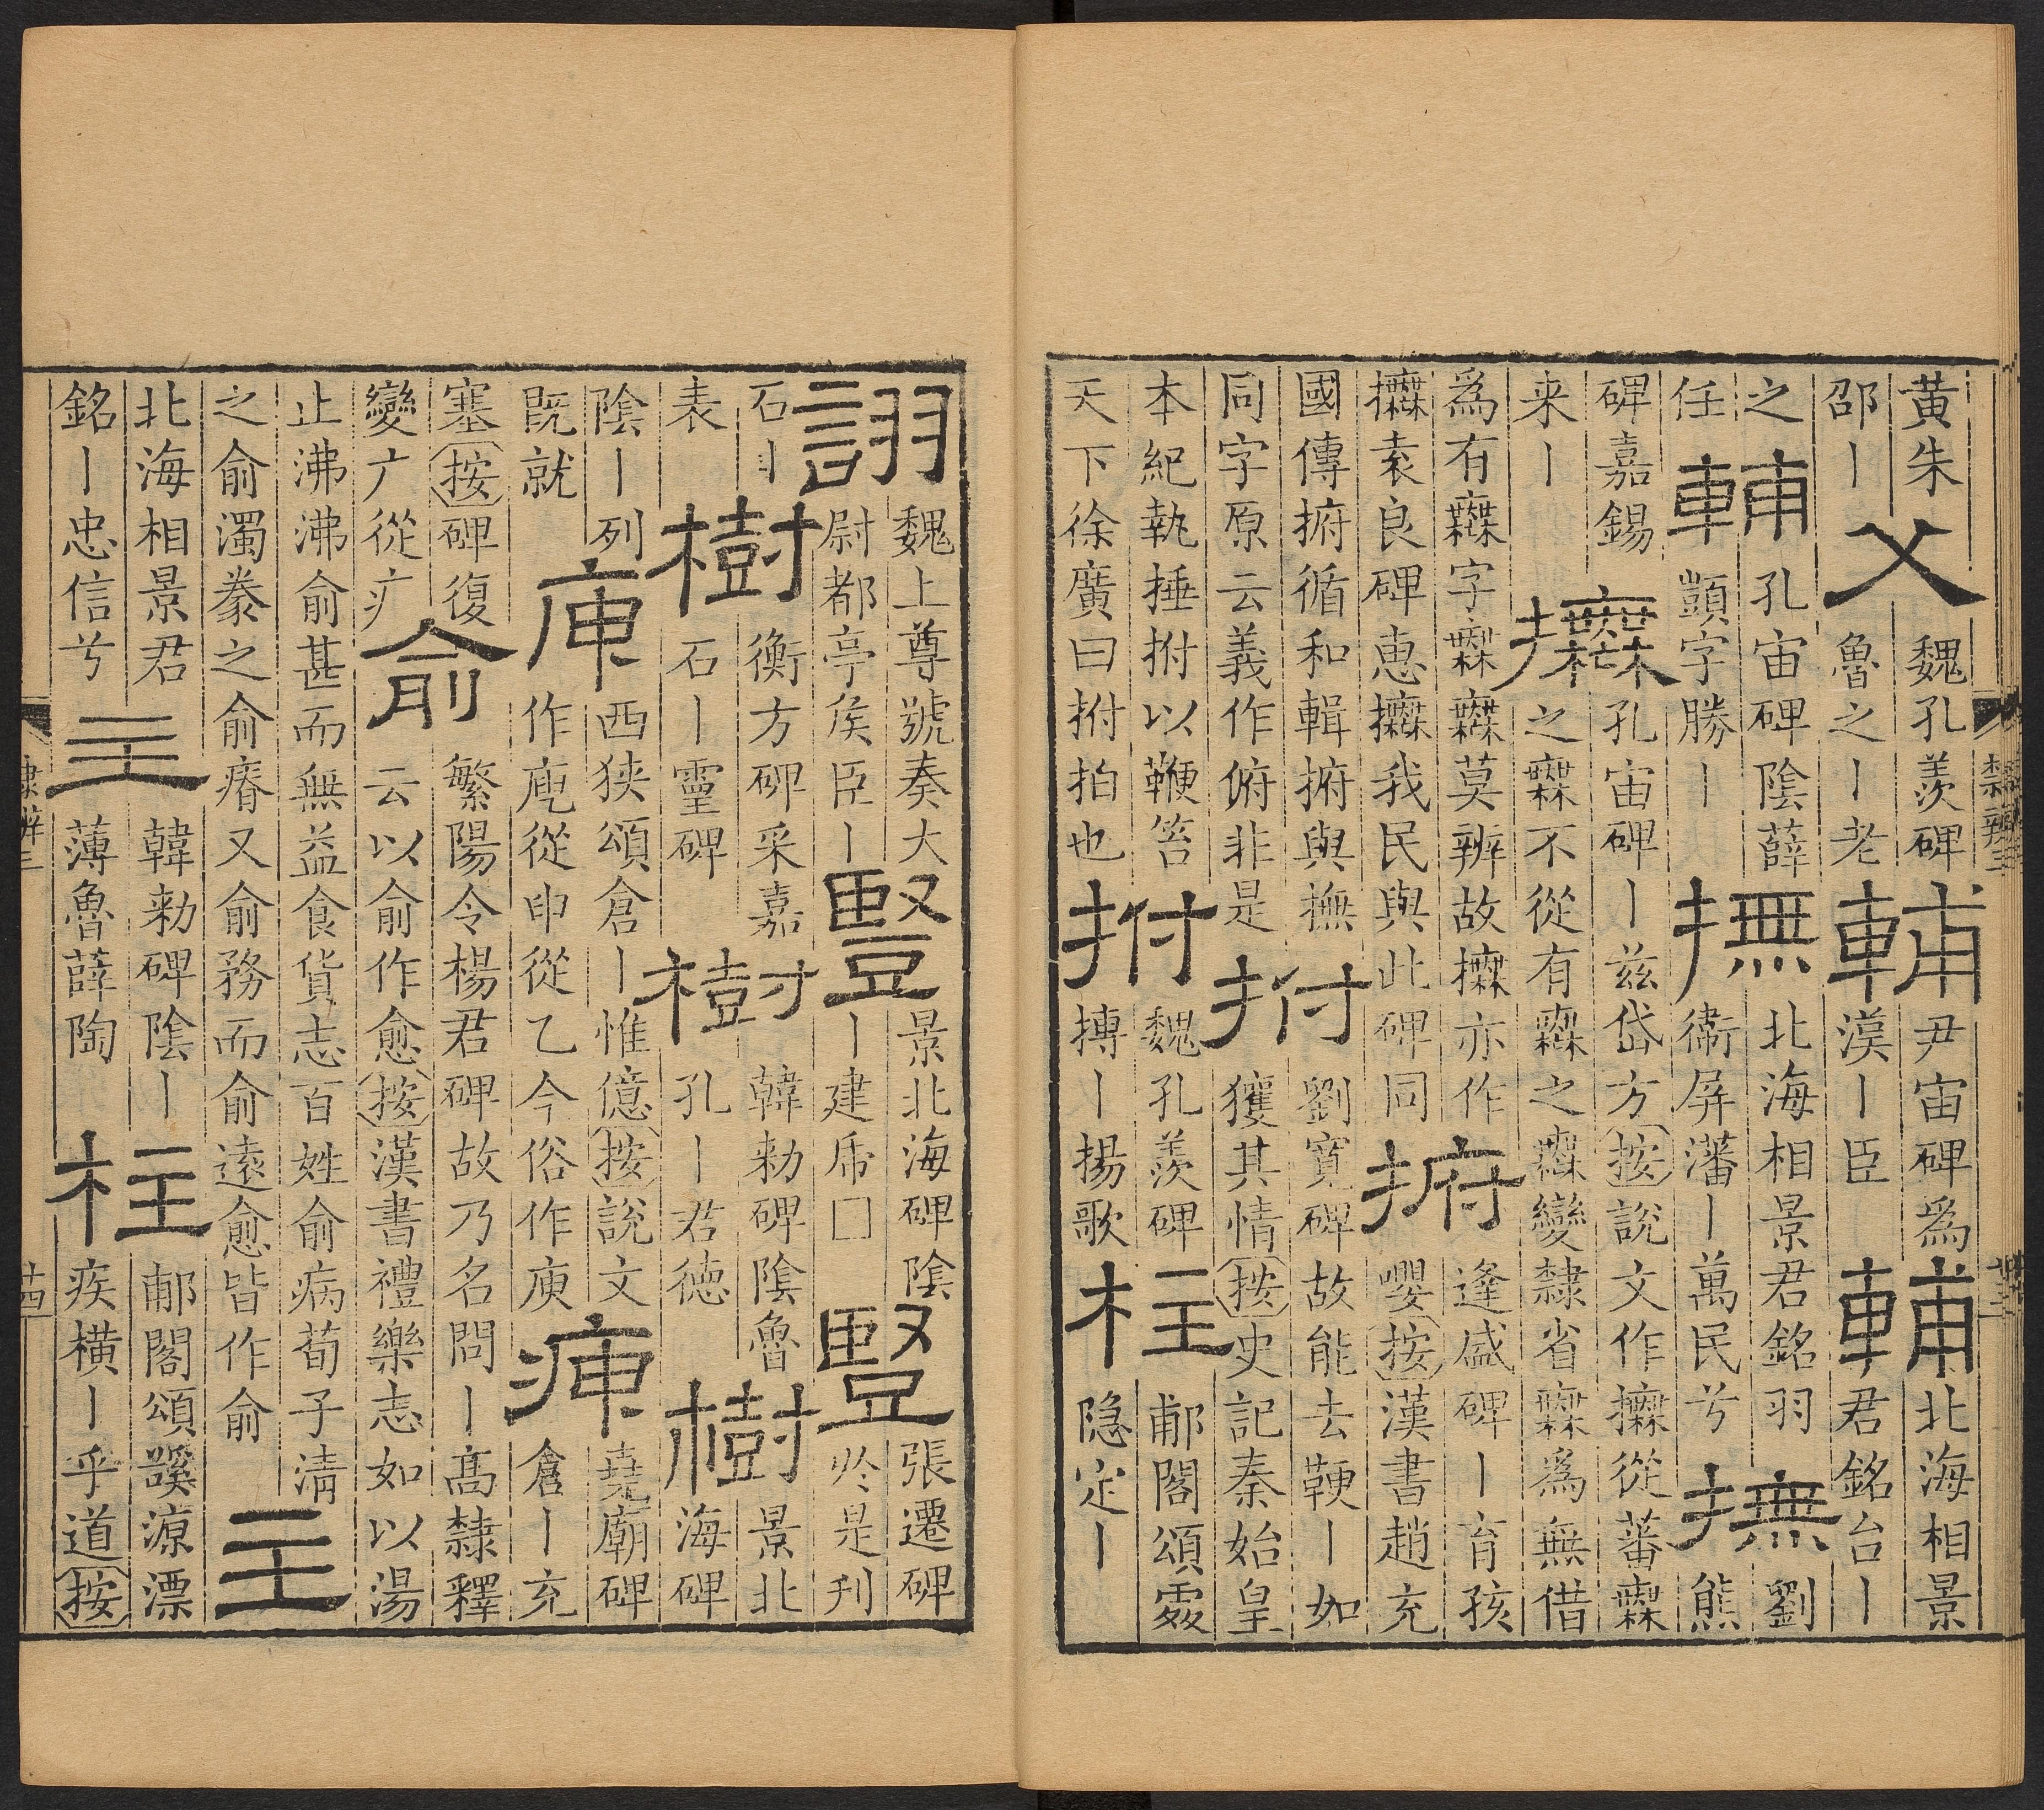 黃朱邵丨父魏孔羨碑魯之丨老輔尹宙碑為漢丨臣輔北海相景君銘台丨
之任輔孔宙碑陰薛顗字勝丨撫北海相景君銘羽衞屏藩丨萬民兮撫劉熊
碑嘉錫来丨㩢孔宙碑丨茲岱方按說文作㩢從蕃橆之橆不從有橆之橆變隸省橆為無借
為有橆字橆橆莫辨故㩢亦作㩢袁良碑惠㩢我民與此碑同捬逢盛碑丨育孩嚶按漢書趙充
國傳捬循和輯捬與撫同字原云義作俯非是拊劉寬碑故能去鞭丨如獲其情按史記秦始皇
本紀執捶拊以鞭笞天下徐廣曰拊拍也拊魏孔羨碑搏丨揚歌柱郙閣頌䖏隱定丨
隸辨三
詡魏上尊號奏大尉都亭矦臣丨豎景北海碑陰丨建席□豎張遷碑於是刋
石丨表樹衡方碑采嘉石丨靈碑樹韓勑碑陰魯孔丨君德樹景北海碑
陰丨列既就庾西狹頌倉丨惟億按說文作庾從申從乙今俗作庾庾堯廟碑倉丨充
塞按碑復變广從疒俞繁陽令楊君碑故乃名問丨高隸釋云以俞作愈按漢書禮樂志如以湯
止沸沸俞甚而無益食貨志百姓俞病荀子清之俞濁豢之俞瘠又俞務而俞遠愈皆作俞主
北海相景君銘丨忠信兮主韓勑碑陰丨薄魯薛陶柱郙閣頌蹊源漂疾橫丨乎道按
隸辨三